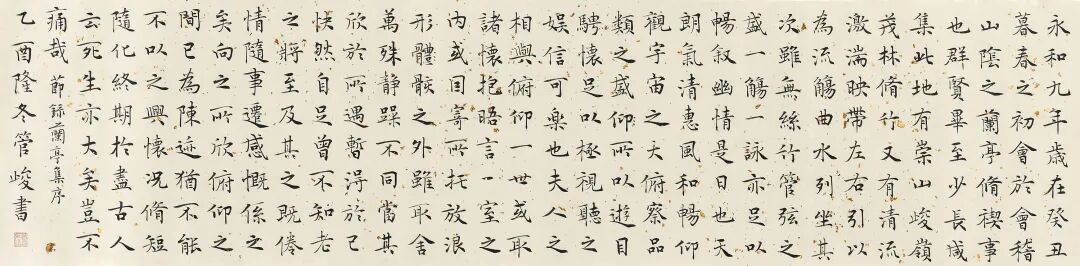 永和九年歲在癸丑
暮春之初會於會稽
山陰之蘭亭脩禊事
也群賢畢至少長咸
集此地有崇山峻嶺
茂林脩竹又有清流
激湍映帶左右引以
為流觴曲水列坐其
次雖無絲竹管弦之
盛一觴一詠亦足以
暢叙幽情是日也天
朗氣清惠風和暢仰
觀宇宙之大俯察品
類之盛仰所以遊目
騁懷足以極視聽之
娛信可樂也夫人之
相與俯仰一世或取
諸懷抱晤言一室之
內或因寄所托放浪
形體骸之外雖取舍
萬殊静躁不同當其
欣於所遇暫得於己
快然自足曾不知老
之將至及其之既倦
情隨事遷感慨係之
矣向之所欣俯仰之
間已為陳迹猶不能
不以之興懷况脩短
隨化終期於盡古人
云死生亦大矣豈不
痛哉 節錄蘭亭集序
乙酉隆冬管峻書